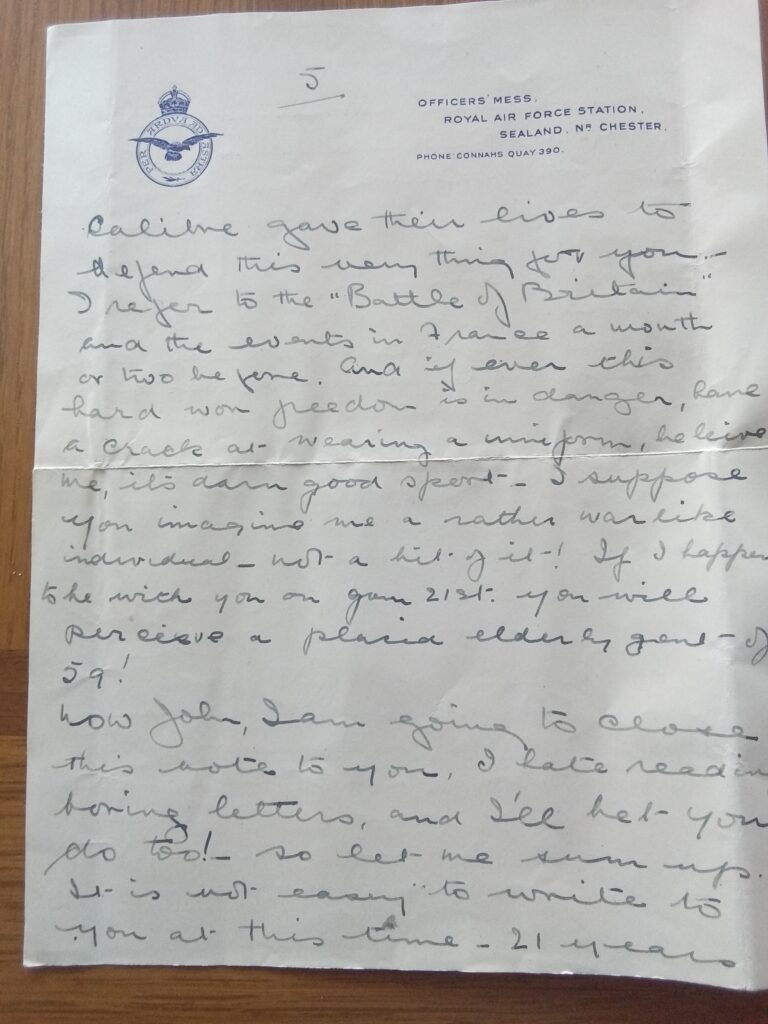 5
PER ARDVA AD ASTRA
OFFICERS' MESS,
ROYAL AIR FORCE STATION,
SEALAND, Nʀ CHESTER.
PHONE: CONNAHS QUAY 390.
calibre gave their lives to
defend this very thing for you.–
I refer to the "Battle of Britain"
and the events in France a month
or two before. And if ever this
hard won freedom is in danger, have
a crack at wearing a uniform, beleive
me, it's darn good sport – I suppose
you imagine me a rather warlike
individual – not a bit of it! If I happen
to be with you on your 21st. you will
perceive a placid elderly gent – of
59!
Now John, I am going to close
this note to you, I hate reading
boring letters, and I'll bet you
do too! – so let me sum up.
It is not easy to write to
you at this time – 21 years